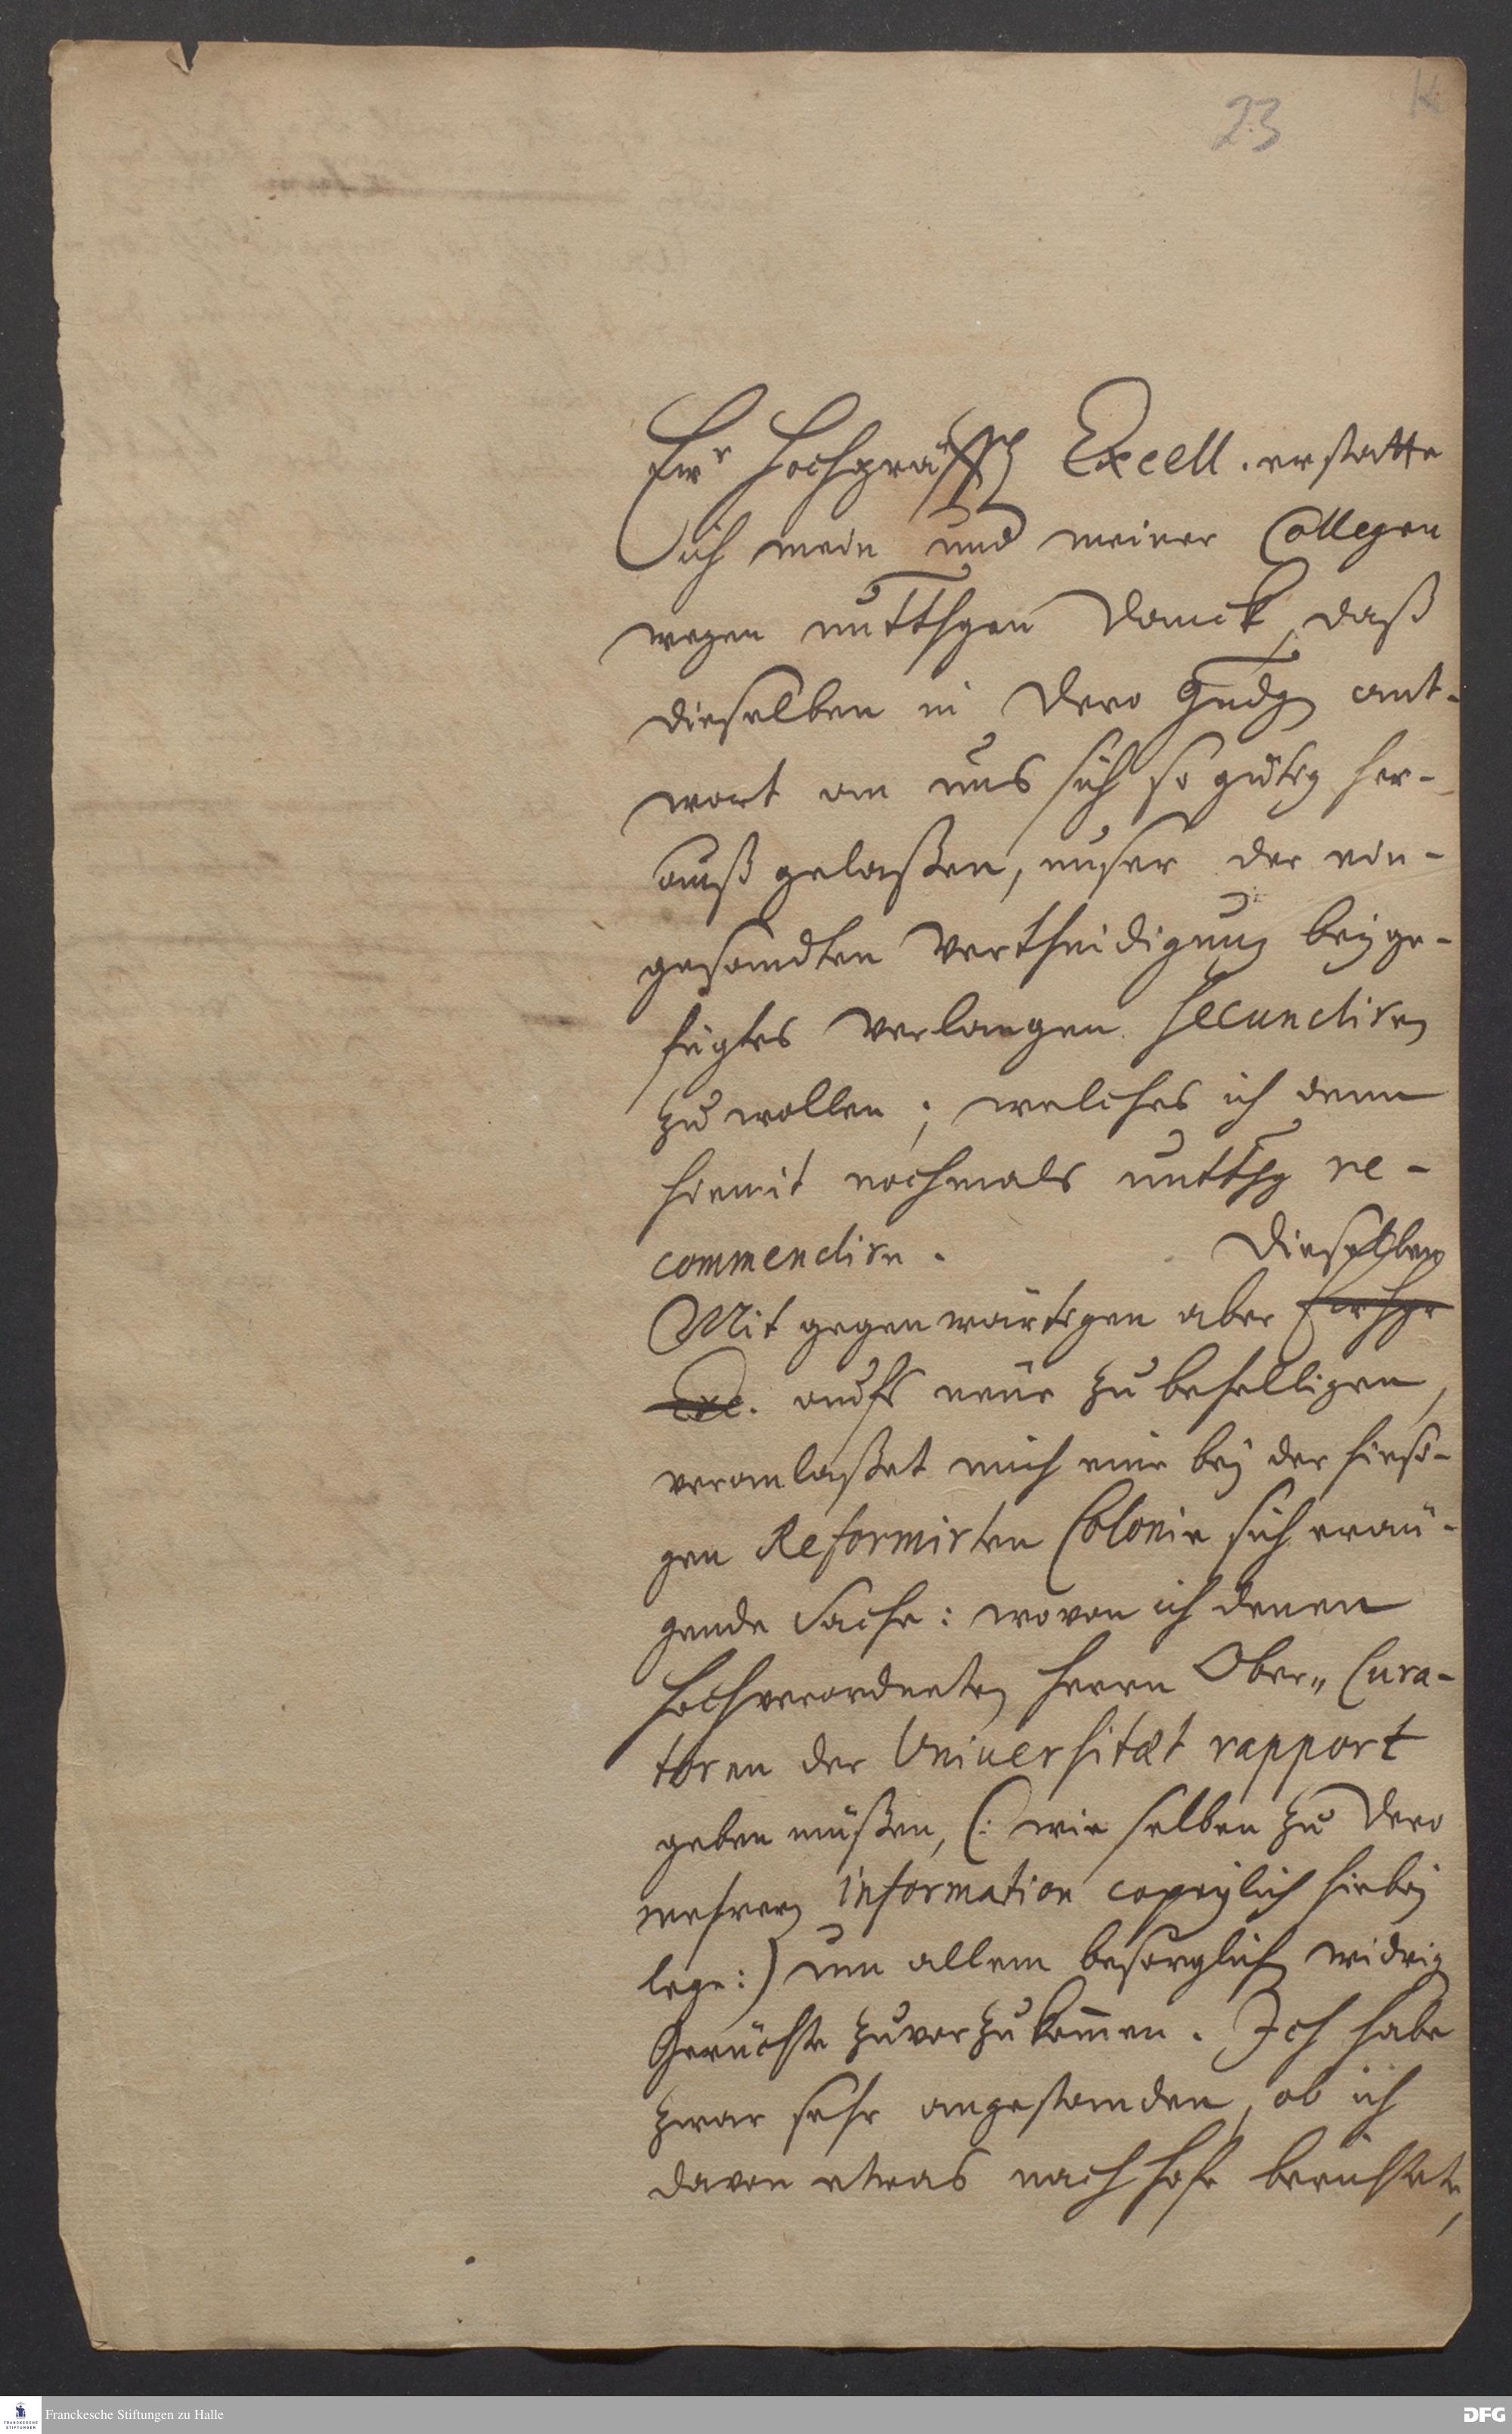 23
Ewr Hochgräffl Excell. erstatte
ich mein und meiner Collegen
wegen unterthgen Danck, daß
dieselben in Dero Gndg ant-
wort an uns sich so gütig her-
auß gelaßen, unser der ein-
gesandten Vertheidigung beyge-
fügtes Verlangen secundiren
zu wollen; welches ich denn
hiemit nochmals untthg re-
commendire.
Dieselben
Mit gegenwärtigen aber Ew hgr
Exc. aufs neue zu behelligen,
veranlaßet mich eine bey der hiesi-
gen Reformirten Colonie sich eräu-
gende Sache: wovon ich denen
Hochverordneten Herrn Ober-Cura-
toren der Universitæt rapport
geben müßen, (: wie selben zu Dero
mehrern information copeylich hiebey
lege:) um allem besorglich widrig
Gerüchte zuvorzukom̄en. Ich habe
zwar sehr angestanden, ob ich
davon etwas nach Hofe berichtete,
Franckesche Stiftungen zu Halle
DFG